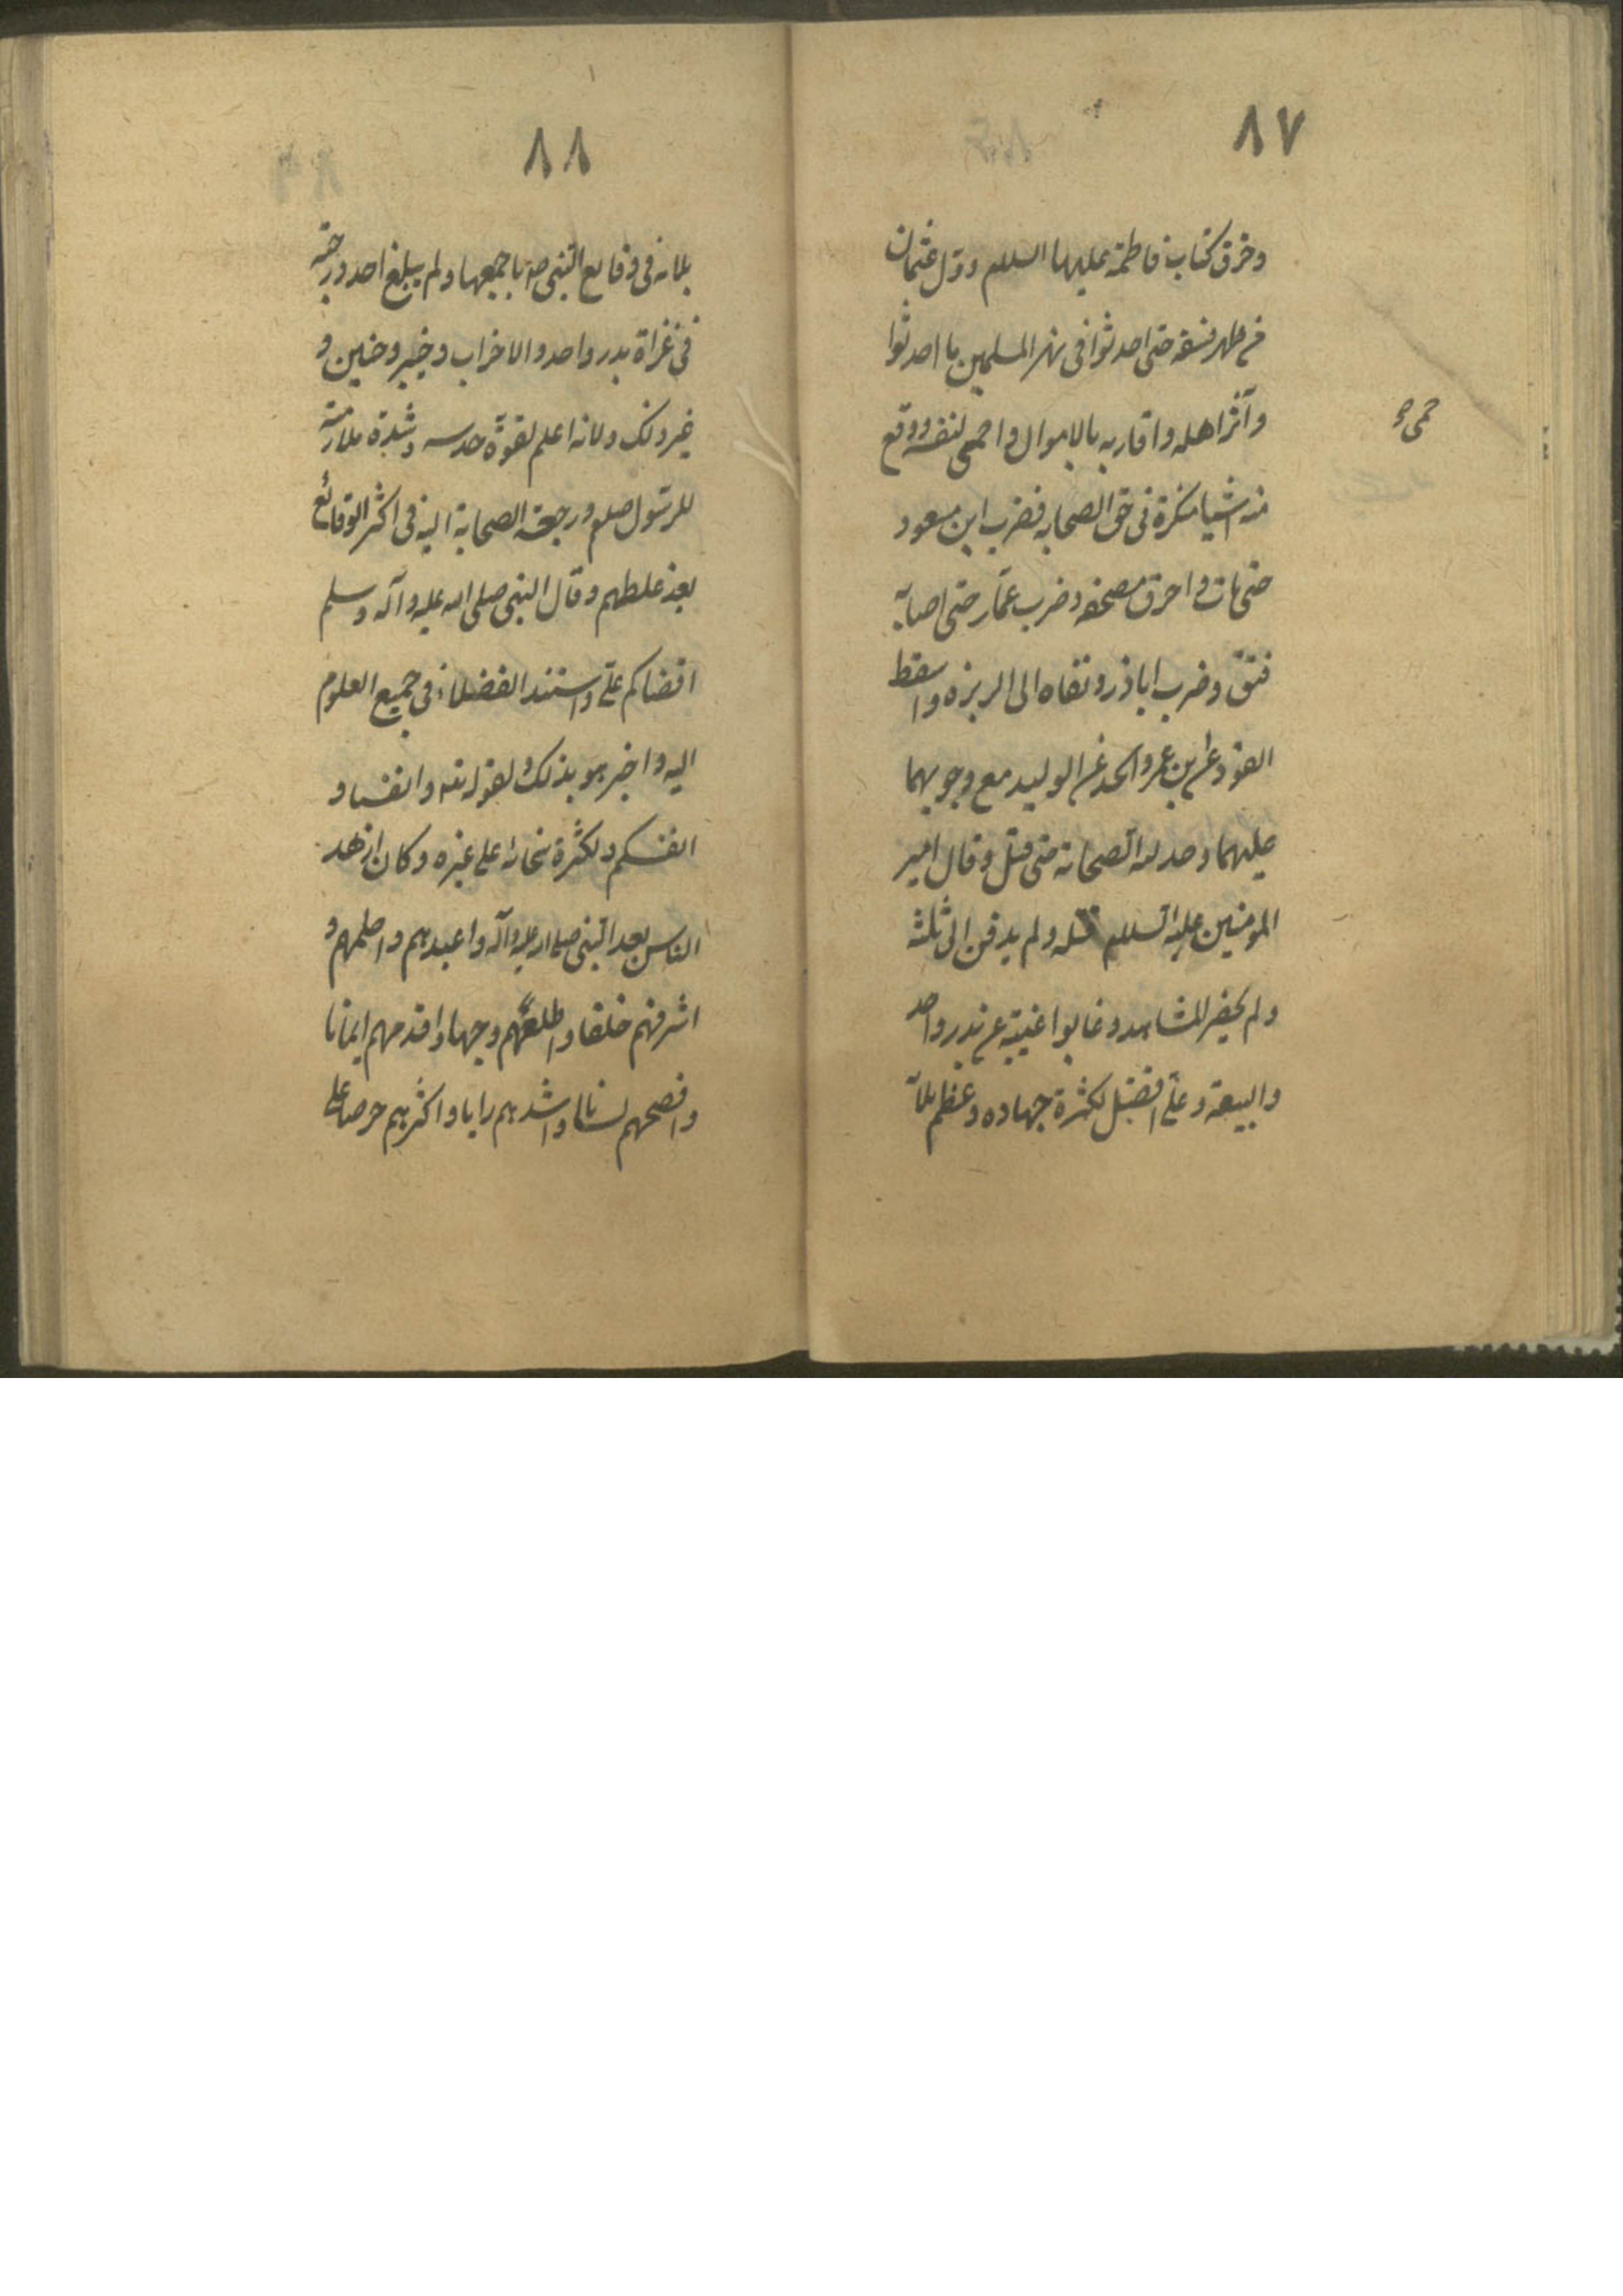 ٨٧
وخرق كتاب فاطمة عليها السلام وولى عثمان
من ظهر فسقه حتى احدثوا فى نهر المسلمين ما احدثوا
وآثر اهله واقاربه بالاموال واحمى لنفسه ووقع
حمى
منه اشيا منكرة فى حق الصحابه فضرب ابن مسعود
حتى مات واحرق مصحفه وضرب عمّار حتى اصابه
فتق وضرب اباذر ونفاه الى الربزه واسقط
القود عن بن عمر والحد عن الوليد مع وجوبهما
عليهما وخدلته الصحابة حتى قتل وقال امير
المومنين عليه السلام قتله ولم يدفن الى ثلثه
ولم يحضر المشاهد وعابوا غيبته عن بدر واحد
والبيعة وعلى افضل لكثرة جهاده وعظم بلآ
٨٨
بلائه فى وقايع النبى ص باجمعها ولم يبلغ احد درجته
فى غزاة بدر واحد والاحزاب وخيبر وحنين و
غير ذلك ولانه اعلم لقوّة حدسه وشدة ملازمته
للرسول صلعم ورجعة الصحابة اليه فى اكثر الوقائع
بعد غلطهم وقال النبى صلى الله عليه وآله وسلم
اقضاكم على واستند الفضلاء فى جميع العلوم
اليه واخبر هو بذلك ولقوله تعه وانفسنا و
انفسكم ولكثرة سخائه على غيره وكان ازهد
الناس بعد النبى صلى الله عليه وآله واعبدهم واحلمهم و
اشرفهم خلقا واطلعهم وجها واقدمهم ايمانا
وافصحهم لسانا واشدهم رايا واكثرهم حرصا على